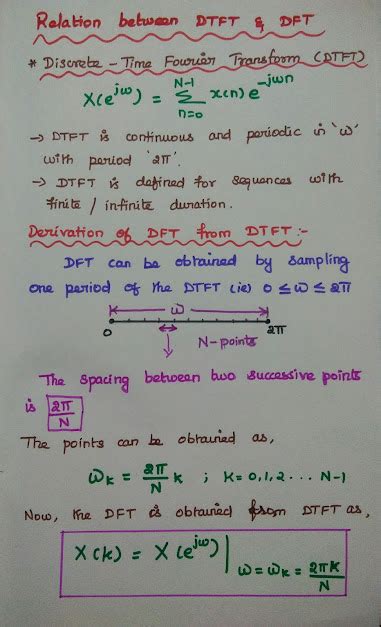 Relation between DTFT & DFT
* Discrete - Time Fourier Transform (DTFT)
X(e^jω) = Σ_{n=0}^{N-1} x(n) e^-jωn
→ DTFT is continuous and periodic in 'ω'
with period '2π'.
→ DTFT is defined for sequences with
finite / infinite duration.
Derivation of DFT from DTFT :-
DFT can be obtained by sampling
one period of the DTFT (ie) 0 ≤ ω ≤ 2π
ω
0 2π
N-points
The spacing between two successive points
is 2π/N
The points can be obtained as,
ω_k = 2π/N k ; K = 0,1,2 ... N-1
Now, the DFT is obtained from DTFT as,
X(k) = X(e^jω) | ω = ω_k = 2πk/N